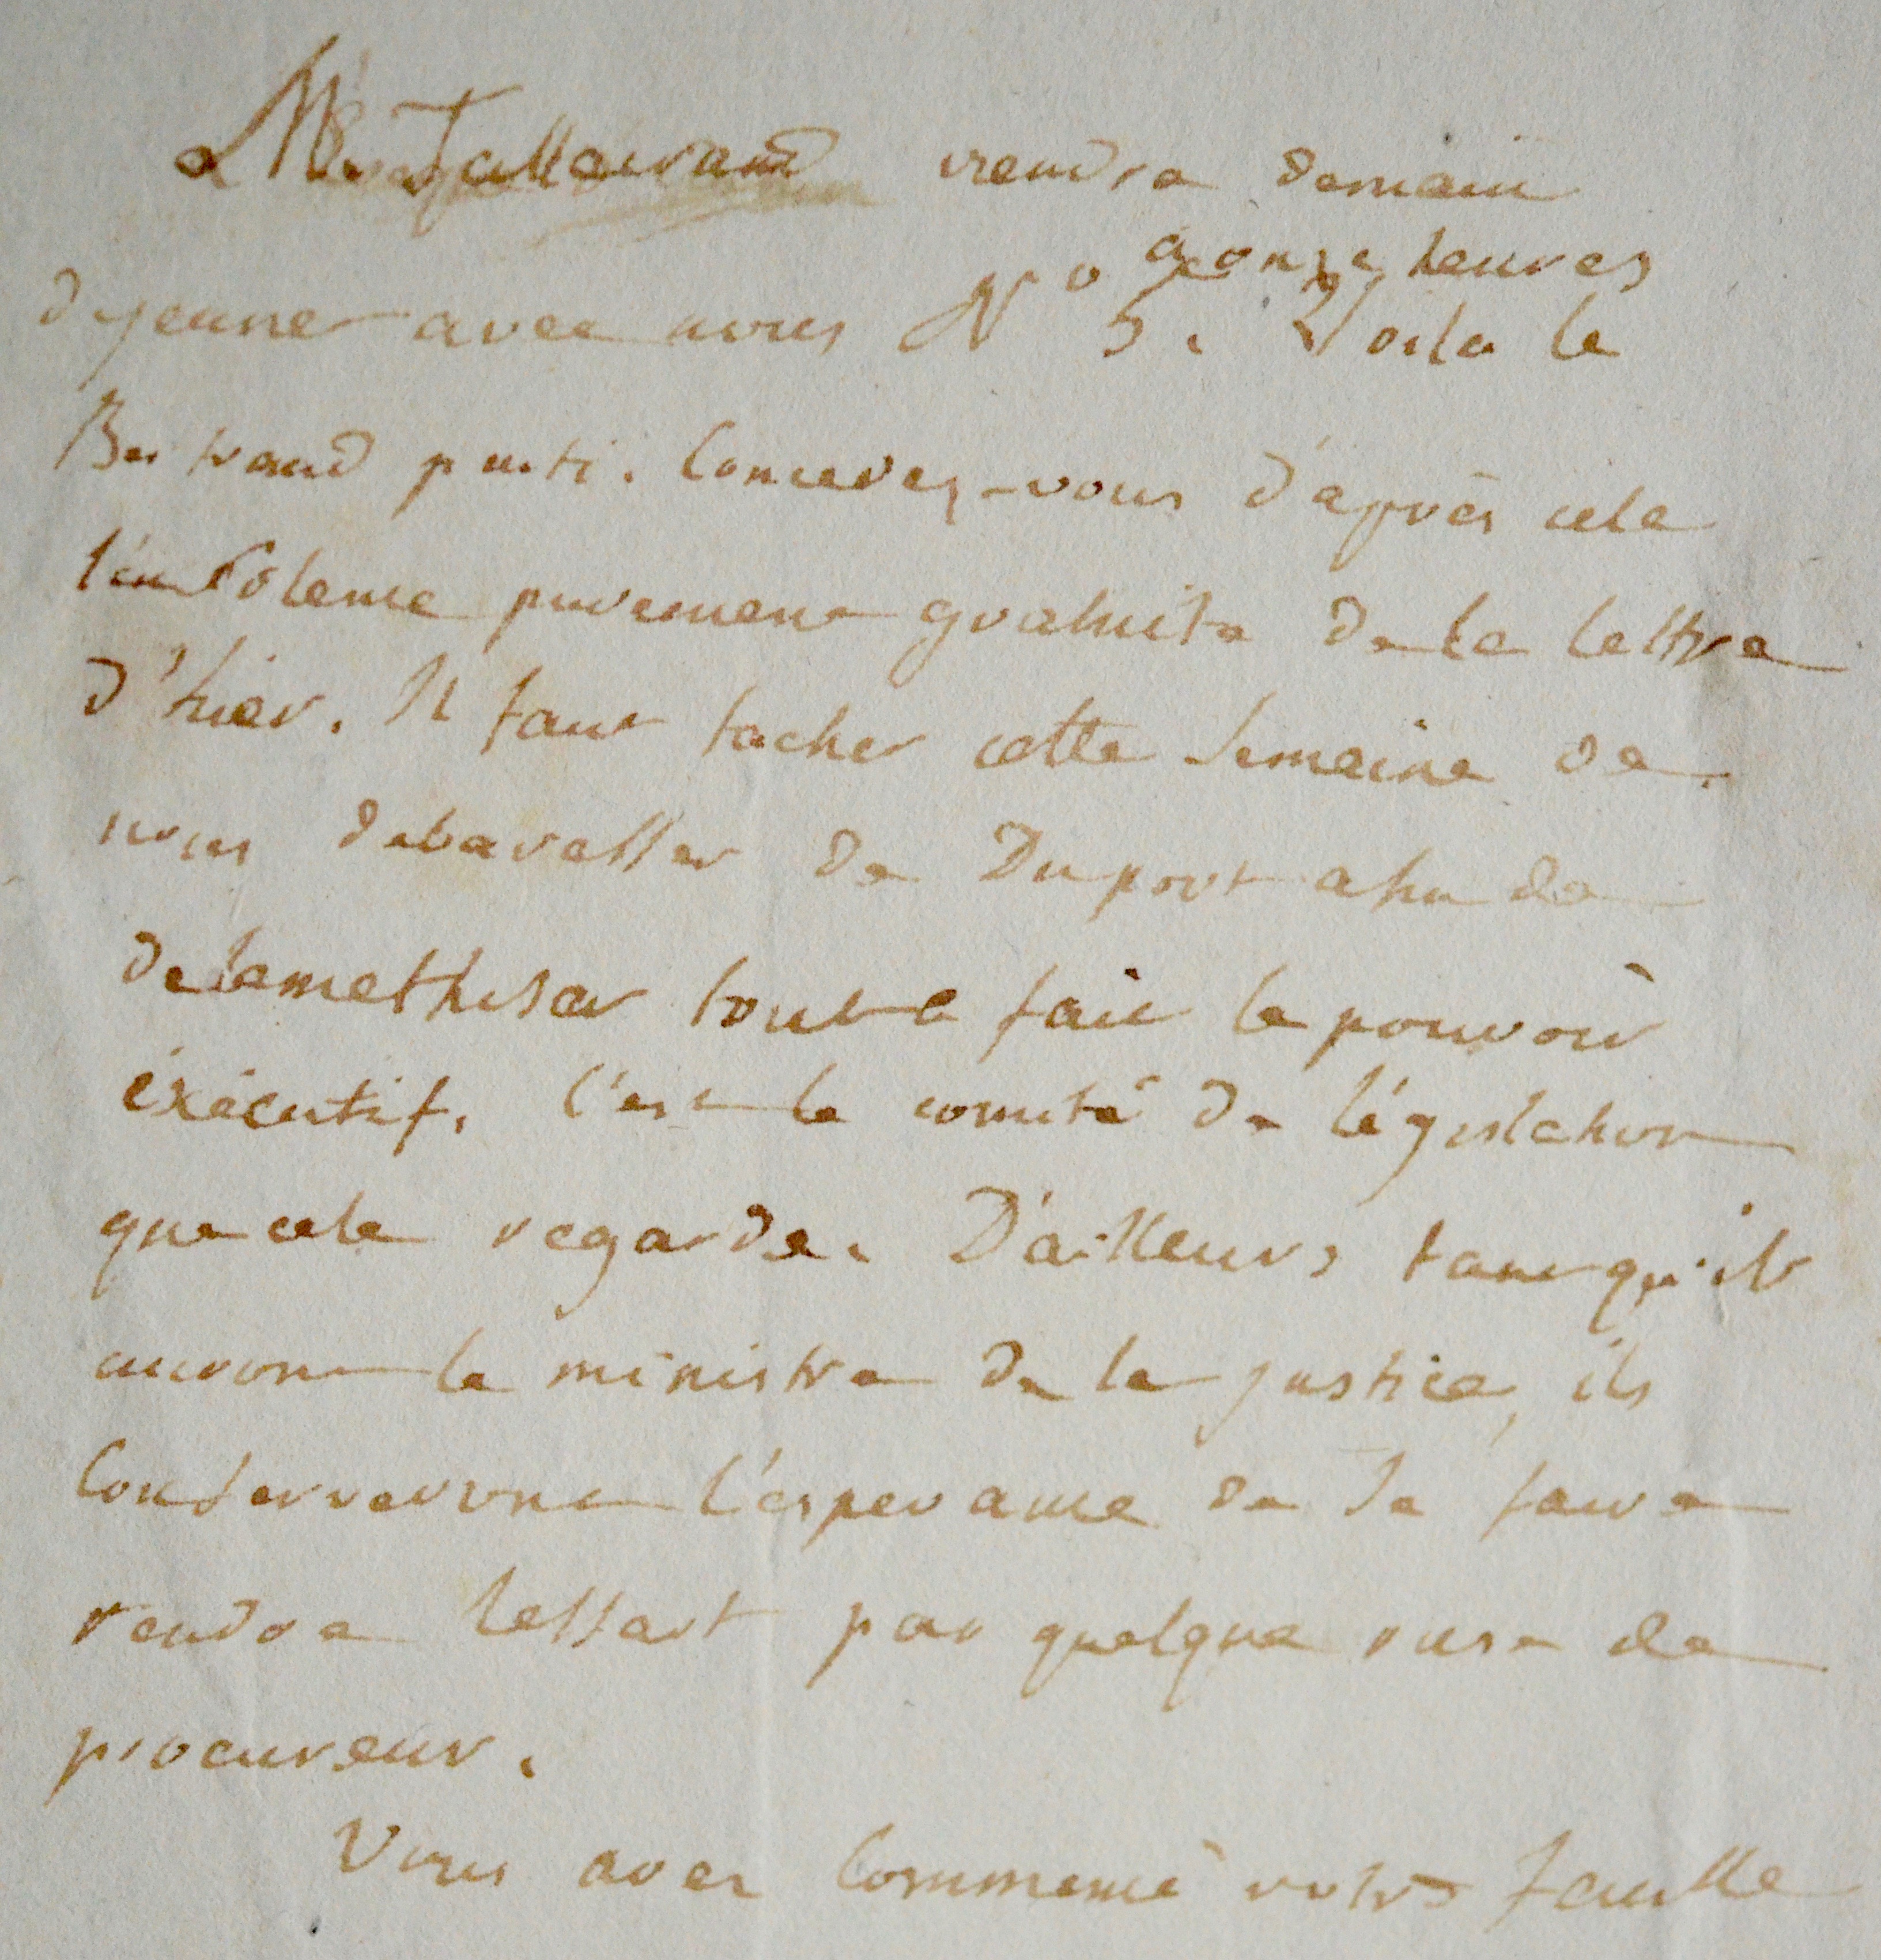 Mr Talleirand viendra demain
a onze heures
dejeuner avec nous N° 5. Voila le
Bertrand parti. Concevez-vous d'après cela
l'insolence purement gratuite de la lettre
d'hier. Il faut tacher cette semaine de
nous debarasser de Duport afin de
delamethiser tout a fait le pouvoir
éxécutif. C'est le comité de législation
que cela regarde. D'ailleurs tant qu'ils
auront le ministre de la justice, ils
conserveront l'esperance de se faire
rendre Lessart par quelque ruse de
procureur.
Vous avez commencé votre feuille